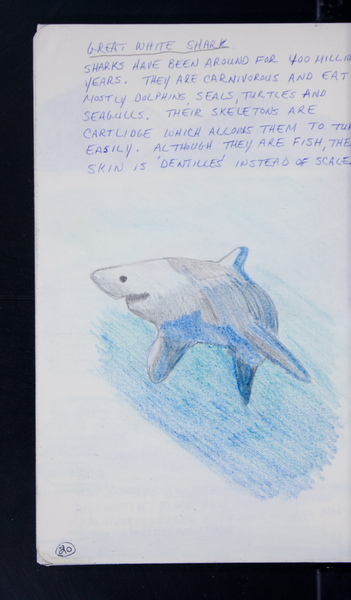 GREAT WHITE SHARK
SHARKS HAVE BEEN AROUND FOR 400 MILLIO
YEARS. THEY ARE CARNIVOROUS AND EAT
MOSTLY DOLPHINS, SEALS, TURTLES AND
SEAGULLS. THEIR SKELETONS ARE
CARTLIDGE WHICH ALLOWS THEM TO TU
EASILY. ALTHOUGH THEY ARE FISH, THE
SKIN IS 'DENTILLES' INSTEAD OF SCALE
20